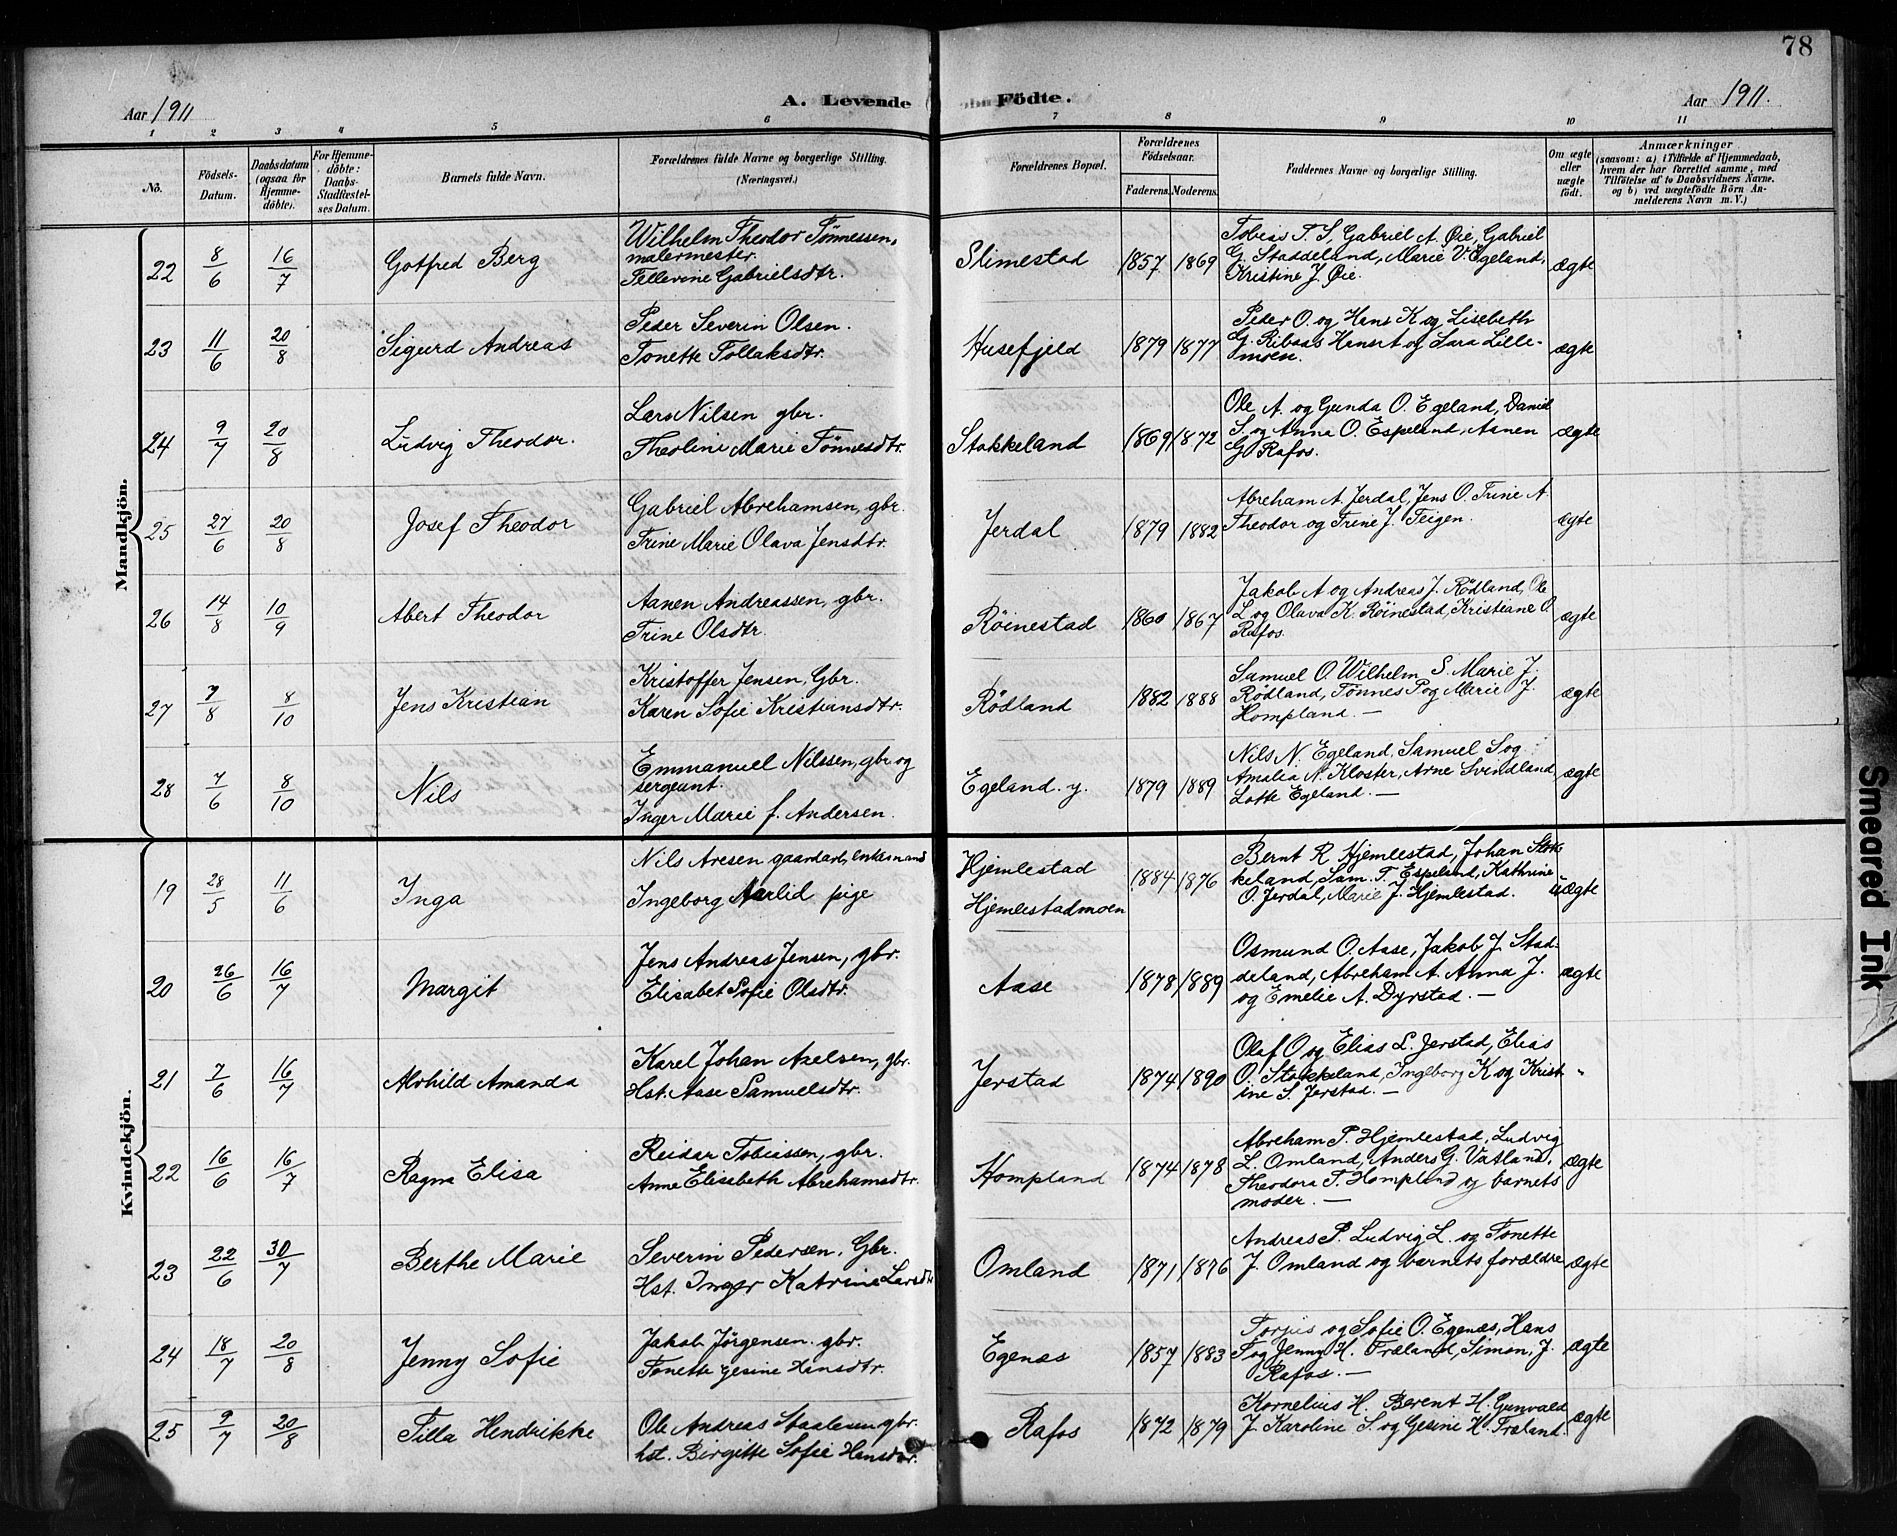 78
Aar 1911 A. Levende Födte. Aar 1911.
1 2 3 4 5 6 7 8 9 10 11
No.
Födsels-
Datum.
Daabsdatum
(ogsaa for
Hjemme-
döbte).
For Hjemme-
döbte:
Daabs-
Stadfæstel-
ses Datum.
Barnets fulde Navn.
Forældrenes fulde Navne og borgerlige Stilling.
(Næringsvei.)
Forældrenes Bopæl.
Forældrenes
Födselsaar.
Faderens. Moderens.
Faddernes Navne og borgerlige Stilling.
Om ægte
eller
uægte
födt.
Anmærkninger
(saasom: a) i Tilfælde af Hjemmedaab,
hvem der har forrettet samme, med
Tilföielse af to Daabsvidners Navne.
og b) ved uægtefödte Börn An-
melderens Navn m. V.)
Mandkjön.
22 8/6 16/7 Gotfred Berg
Wilhelm Theodor Tönnessen,
malermester.
Tellevine Gabrielsdtr.
Slimestad 1857 1869
Tobias T. S, Gabriel A. Øie, Gabriel
G. Staddeland, Marie V. Egeland,
Kristine J. Øie.
ægte
23 11/6 20/8 Sigurd Andreas
Peder Severin Olsen.
Tonette Tollaksdtr.
Husefjeld 1879 1877
Peder O. og Hans K og Lisebeth
G. Ribaas Hansrt og Sara Lille-
moen.
ægte
24 9/7 20/8 Ludvig Theodor.
Lars Nilsen gbr.
Theoline Marie Tönnesdtr.
Stokkeland 1869 1872
Ole A. og Gunda O. Egeland, Daniel
S. og Anna O. Espeland, Aanen
G. Rafos.
ægte
25 27/6 20/8 Josef Theodor
Gabriel Abrehamsen, gbr.
Trine Marie Olava Jensdtr.
Jerdal 1879 1882
Abreham A. Jerdal, Jens O. Trine A.
Theodor og Trine J. Teigen.
ægte
26 14/8 10/9 Abert Theodor
Aanen Andreassen, gbr.
Trine Olsdtr.
Röinestad 1860 1867
Jakob A og Andreas J. Rödland, Ole
L. og Olava K. Röinestad, Kristiane O.
Rafos.
ægte
27 7/8 8/10 Jens Kristian
Kristoffer Jensen, Gbr.
Karen Sofie Kristiansdtr.
Rödland 1882 1888
Samuel O. Wilhelm S. Marie J.
Rödland, Tönnes P og Marie J.
Hompland. —
ægte
28 7/6 8/10 Nils
Emmanuel Nilssen, gbr. og
sergeant.
Inger Marie f. Andersen.
Egeland. y. 1879 1889
Nils N. Egeland, Samuel S og
Amalia N. Kloster, Arne Svindland,
Lotte Egeland. —
ægte
Kvindekjön.
19 28/5 11/6 Inga
Nils Aresen gaardarb, enkemand
Ingeborg Aarlid pige
Hjemlestad
Hjemlestadmoen
1884 1876
Bernt R. Hjemlestad, Johan Stok-
keland, Sam. T. Espeland, Kathrine
O. Jerdal, Marie J. Hjemlestad.
uægte
20 26/6 16/7 Margit
Jens Andreas Jensen, gbr.
Elisabet Sofie Olsdtr.
Aase 1878 1889
Osmund O. Aase, Jakob J. Stad-
deland, Abreham A. Anna J.
og Emelie A. Dyrstad. —
ægte
21 7/6 16/7 Alvhild Amanda
Karel Johan Axelsen, gbr.
Hst. Aase Samuelsdtr.
Jerstad 1874 1890
Olaf O og Elias L. Jerstad, Elias
O. Stokkeland, Ingeborg K og Krist-
ine S. Jerstad. —
"
22 16/6 16/7 Ragna Elisa
Reidar Tobiassen, gbr.
Anne Elisebeth Abrehamsdtr.
Hompland 1874 1878
Abreham P. Hjemlestad, Ludvig
L. Omland, Anders G. Vatland,
Theodora T. Hompland og barnets
moder. —
ægte
23 22/6 30/7 Berthe Marie
Severin Pedersen, Gbr.
Hst. Inger Katrine Larsdtr
Omland 1871 1876
Andreas P. Ludvig L. og Tonette
J. Omland og barnets forældre
ægte
24 18/7 20/8 Jenny Sofie
Jakob Jörgensen. gbr.
Tonette Gesine Hansdtr.
Egenæs 1857 1883
Torjus og Sofie O. Egenæs, Hans
T og Jenny H. Træland, Simon J.
Rafos. —
ægte
25 9/7 20/8 Tilla Hendrikke
Ole Andreas Staalesen gbr.
hst. Birgitte Sofie Hansdtr.
Rafos 1872 1879
Kornelius H. Berent H. Gunvald
J. Karoline S. og Gesine H. Træland.
ægte
Smeared Ink